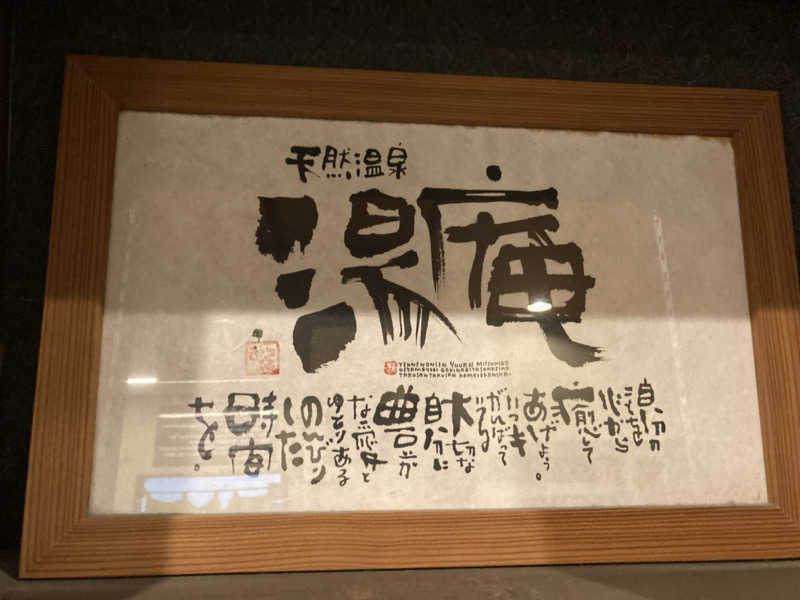 天然温泉
湯庵
TENNENONSEN YUUAN
自分の
こころを
心から
癒して
あげよう。
いつも
がんばって
いる
大切な
自分に
豊か
な愛と
ゆとりある
のんびり
した
時間
を。